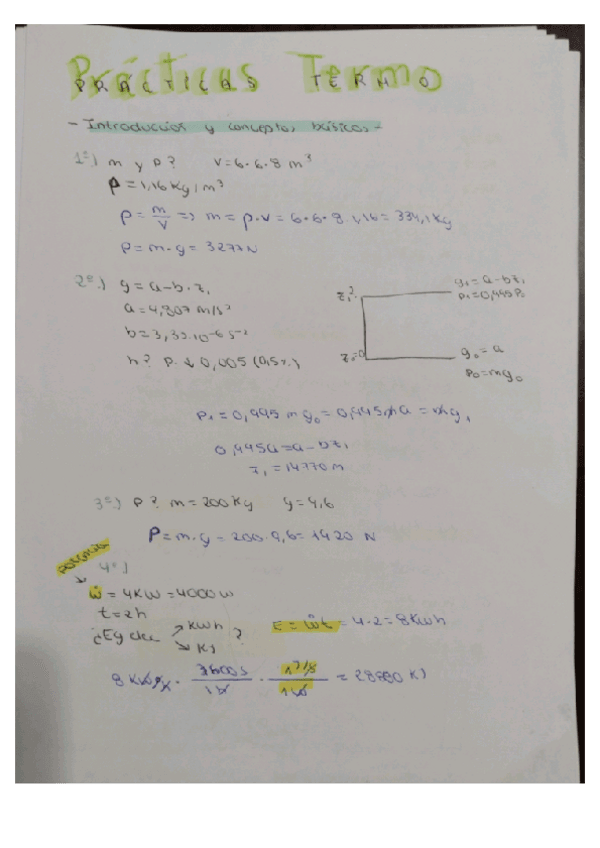 Prácticas Termo
PRÁCTICAS TERMO
- Introducción y conceptos básicos -
1º) m y P? V=6·6·8 m³
ρ=1,16 Kg/m³
ρ = m/V => m = ρ·V = 6·6·8·1,16 = 334,1 Kg
P = m·g = 3277 N
2º) g = a-b·z₁
a = 9,807 m/s²
b = 3,32·10⁻⁶ s⁻²
h? P ↓ 0,005 (0,5%)
z₁? g₁=a-bz₁
P₁=0,995P₀
z₀=0 g₀=a
P₀=mg₀
P₁ = 0,995 m g₀ = 0,995 m a = m g₁
0,995a = a-bz₁
z₁ = 14770 m
3º) P? m=200 Kg g=9,6
P = m·g = 200·9,6 = 1920 N
potencia
4º)
Ẇ = 4KW = 4000 W
t = 2h
¿Eg elec KWh ?
KJ
E = Ẇt = 4·2 = 8KWh
8 KWh · 3600s/1h · 1 J/s/1W = 28880 KJ